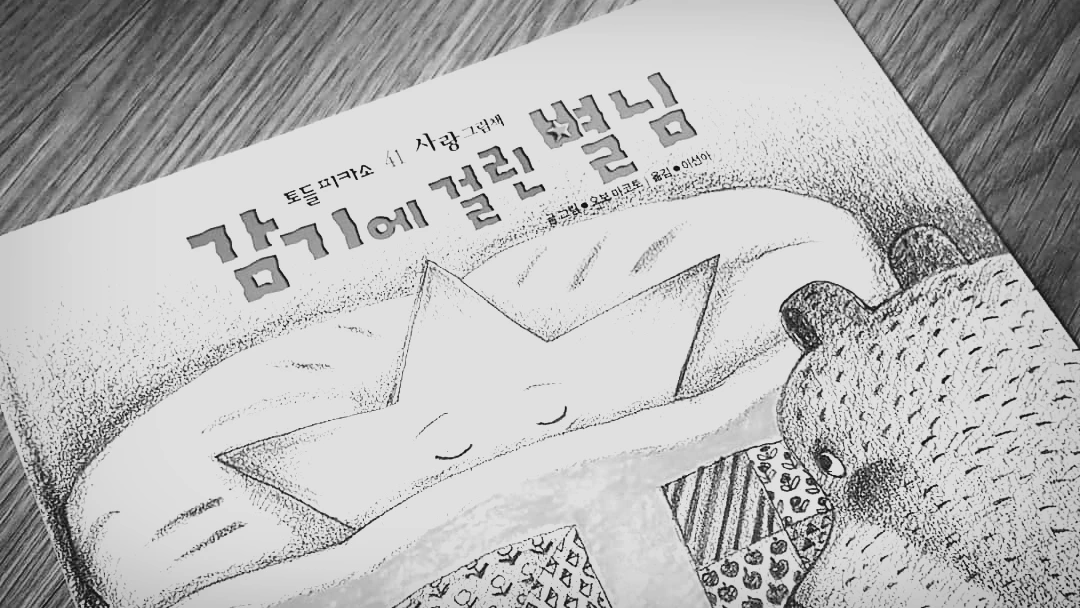 토들피카소 41 사랑그림책
감기에 걸린 별님
글 그림●오보 마코토 | 옮김●이선아